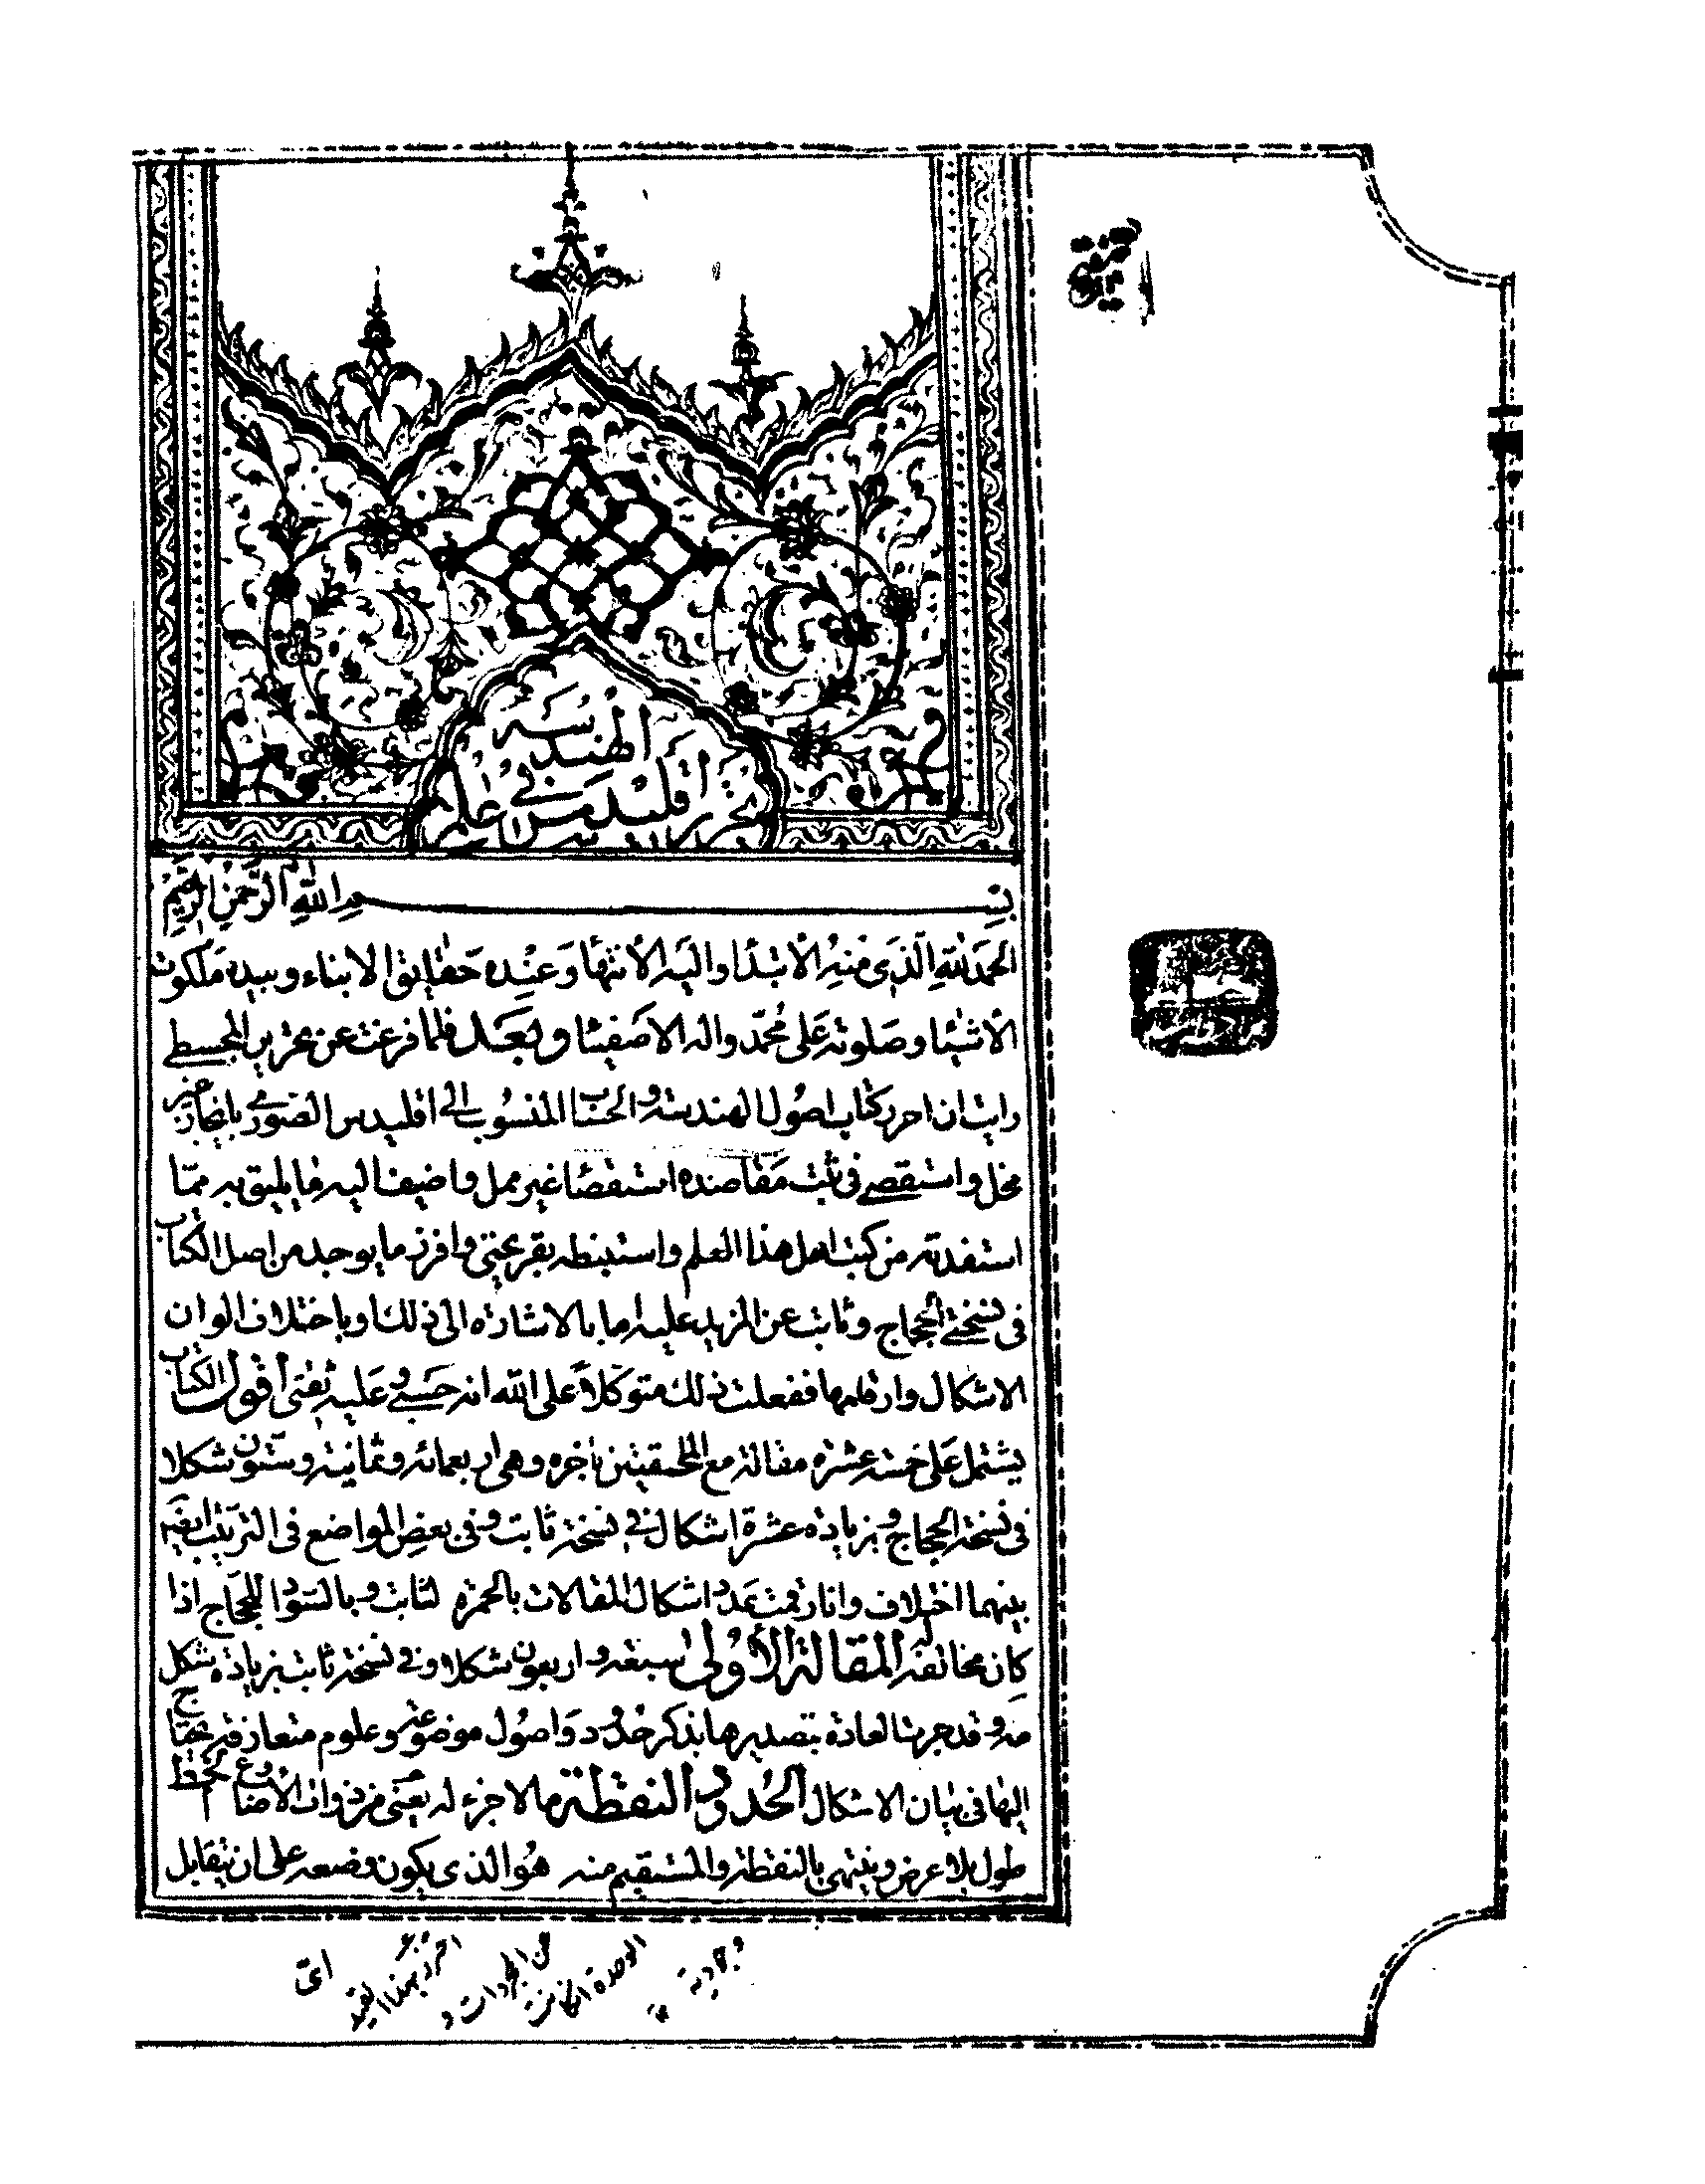 تحرير اقليدس في علم
الهندسه
بسم الله الرحمن الرحيم
الحمد لله الذي منه الابتدا واليه الانتها وعنده حقايق الانباء وبيده ملكوت
الاشيا وصلوته على محمد واله الاصفيا وبعد فلما فرغت عن تحرير المجسطي
رايت ان احرر كتاب اصول الهندسة والحساب المنسوب الى اقليدس الصوري بايجاز غير
مخل واستقصى في ثبت مقاصده استقصا غير ممل واضيف اليه ما يليق به مما
استفدته من كتب اهل هذا العلم واستنبطه بقريحتي وافرز ما يوجد من اصل الكتاب
في نسختي الحجاج وثابت عن المزيد عليه اما بالاشاره الى ذلك او باختلاف الوان
الاشكال وارقامها ففعلت ذلك متوكلا على الله انه حسبي وعليه ثقتي أقول الكتاب
يشتمل على خمسة عشره مقالة مع الملحقتين باخره وهي اربعمائه وثمانية وستون شكلا
في نسخة الحجاج وبزيادة عشرة اشكال في نسخة ثابت وفي بعض المواضع في الترتيب ايضا
بينهما اختلاف وانا رقمت عدد اشكال المقالات بالحمرة لثابت وبالسواد للحجاج اذا
كان مخالفه المقالة الأولى سبعة واربعون شكلا وفي نسخة ثابت بزيادة شكل
مه وقد جرت العادة بتصديرها بذكر حدود واصول موضوعه وعلوم متعارفه يحتاج
اليها في بيان الاشكال الحدود النقطة ما لا جزء له يعني من ذوات الأوضاع الخط
طول بلا عرض وينتهي بالنقطة والمستقيم منه هو الذي يكون وضعه على ان يتقابل